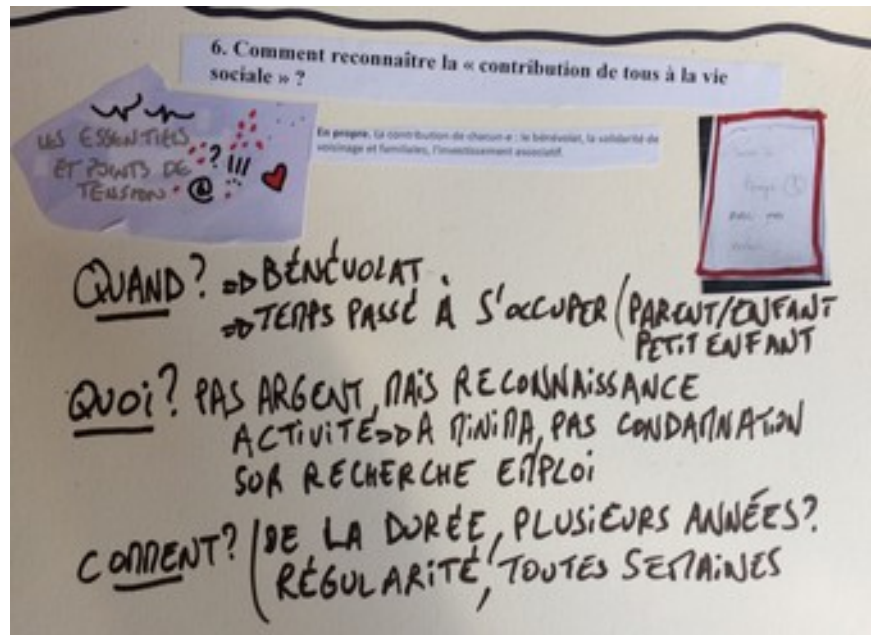 6. Comment reconnaître la « contribution de tous à la vie
sociale » ?
LES ESSENTIELS
ET POINTS DE
TENSION
? !!!
@
En propre. La contribution de chacun·e : le bénévolat, la solidarité de
voisinage et familiales, l'investissement associatif.
QUAND? => BÉNÉVOLAT.
=> TEMPS PASSÉ À S'OCCUPER (PARENT/ENFANT
PETIT ENFANT
QUOI? PAS ARGENT, MAIS RECONNAISSANCE
ACTIVITÉ => A MINIMA, PAS CONDAMNATION
SUR RECHERCHE EMPLOI
COMMENT? (DE LA DURÉE, PLUSIEURS ANNÉES?
RÉGULARITÉ, TOUTES SEMAINES